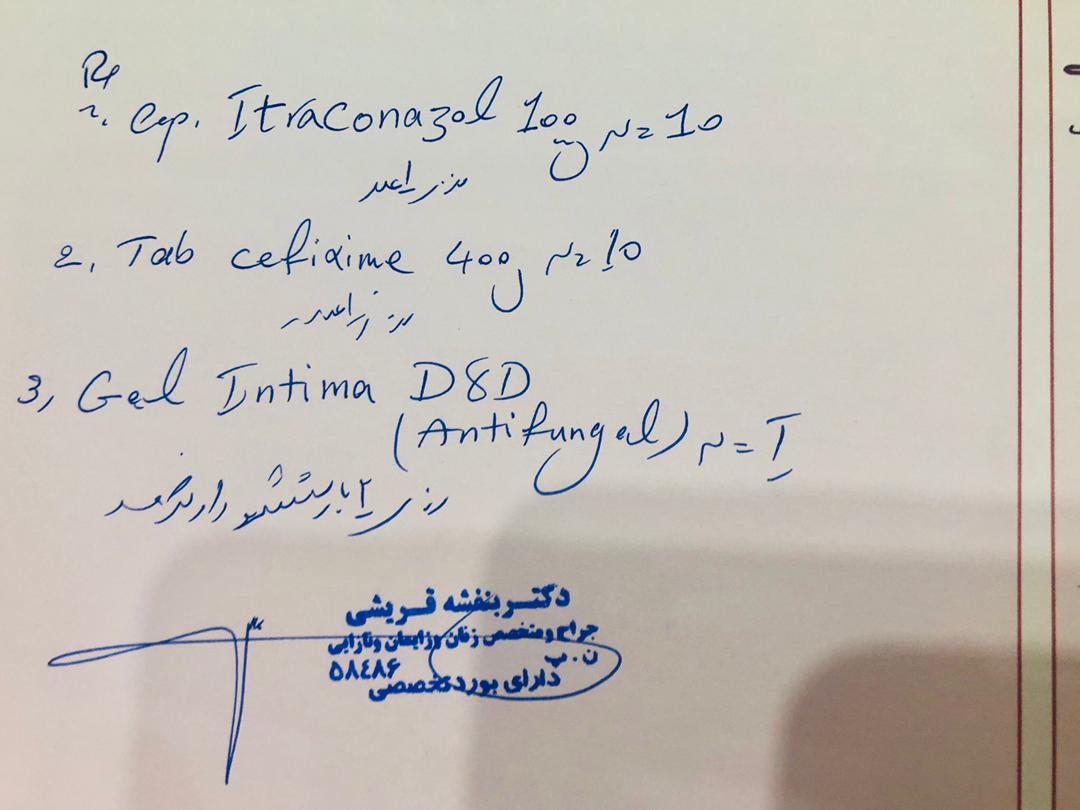 Rx
1. Cap. Itraconazol 100mg N=10
روزی 1 عدد
2, Tab cefixime 400mg N=10
روزی 1 عدد
3, Gel Intima D&D
(Antifungal) N=I
روزی ۲ بار شستشو داده شود
دکتر بنفشه قریشی
جراح و متخصص زنان و زایمان و نازایی
ن . پ ۵۸۴۸۶
دارای بورد تخصصی